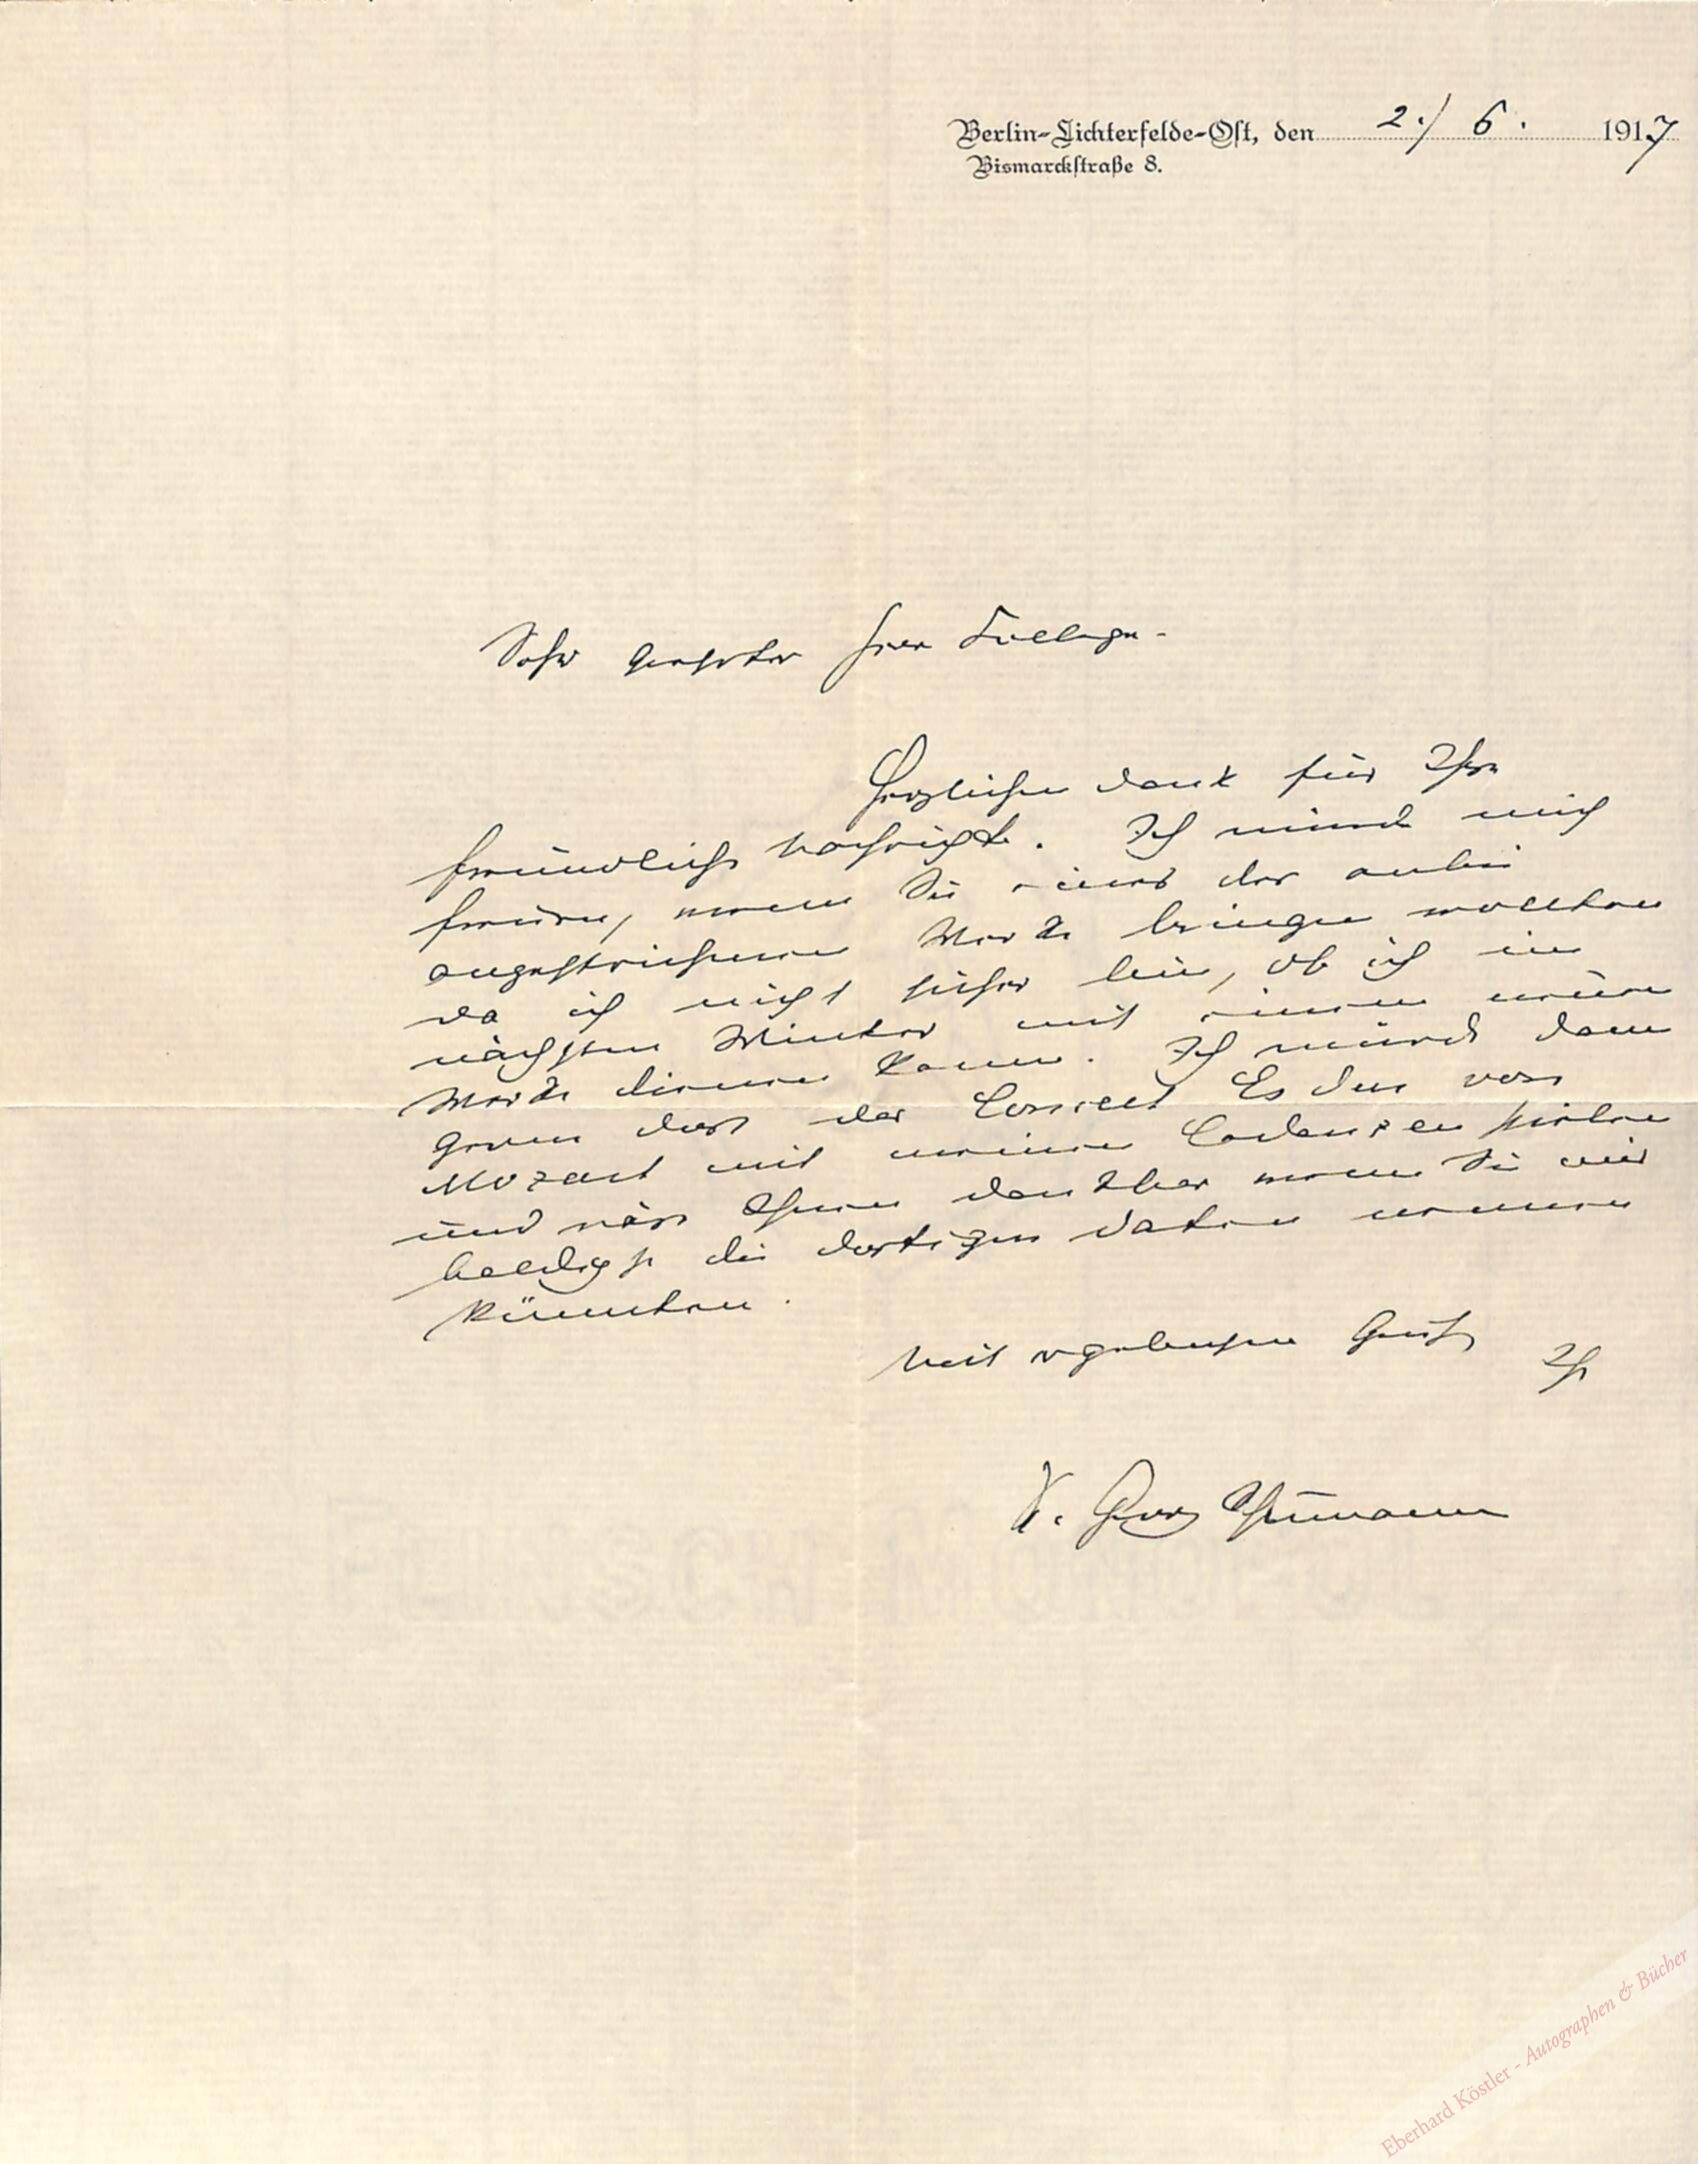 Berlin-Lichterfelde-Ost, den 2./6. 1917
Bismarckstraße 8.
Sehr geehrter Herr Kollege.
Herzlichen Dank für Ihre
freundliche Nachricht. Ich würde mich
freuen, wenn Sie eines der anbei
angestrichenen Werke bringen wollten
da ich nicht sicher bin, ob ich im
nächsten Winter mit einem neuen
Werke dienen kann. Ich würde dann
gern dort das Concert Es dur von
Mozart mit meinen Cadenzen spielen
und wäre Ihnen dankbar wenn Sie mir
baldigst die dortigen Daten nennen
könnten.
Mit ergebenstem Gruß
Ihr
Georg Schumann
Eberhard Köstler - Autographen & Bücher